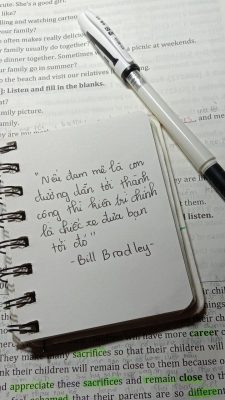 cute. She's a good girl.
like?
lling and watching cartoo
your family?
often makes really delicio
y family usually do together
a picnic at weekends.
e dinner together. Sometimes
ur family go in summer?
o the beach and visit our relatives
]: Listen and fill in the blanks.
at?
amily picture.
amily.
and me
"Nếu đam mê là con
đường dẫn tới thành
công thì kiên trì chính
là chiếc xe đưa bạn
tới đó"
-Bill Bradley-
them
listen.
their chi
have more career
They make many sacrifices so that their children will
ink their children will remain close to them because o
d appreciate these sacrifices and remain close to th
feel ashamed that their parents are so different